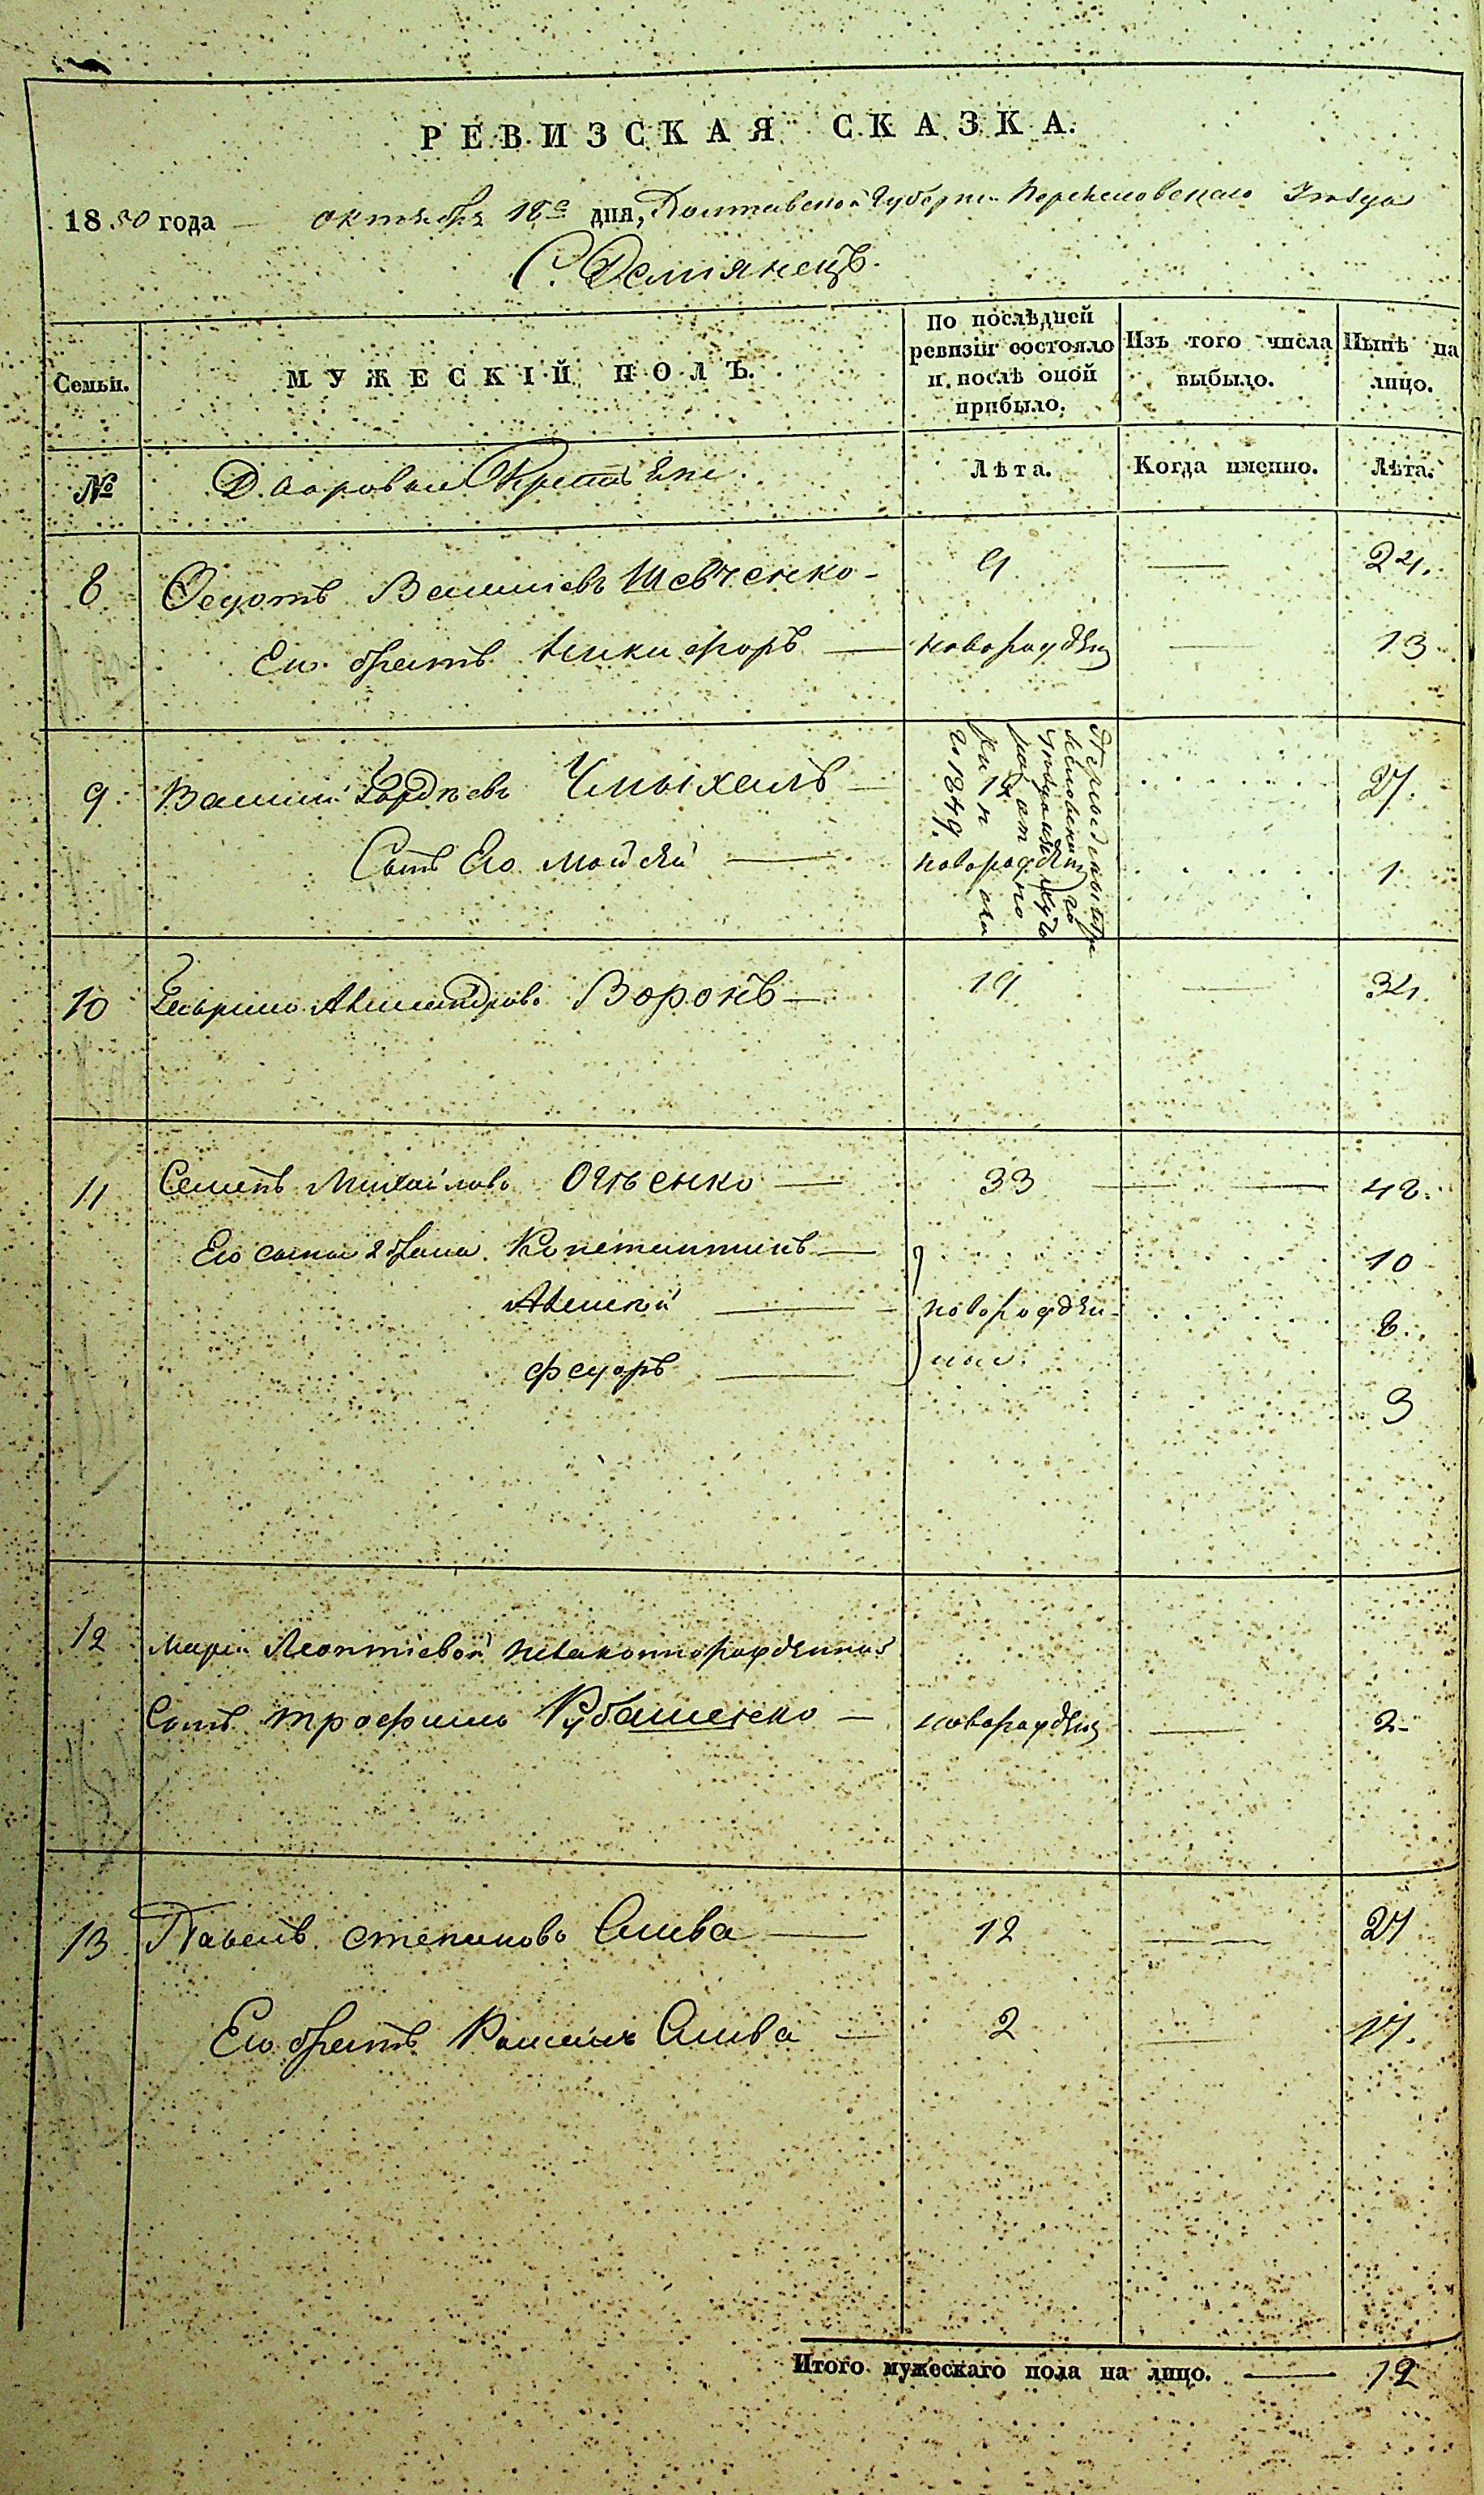 РЕВИЗСКАЯ СКАЗКА.
1850 года октября 18го дня, Полтавской Губернии Переяславскаго Уѣзда
С. Демянецъ.
Семьи.
МУЖЕСКІЙ ПОЛЪ.
По послѣдней ревизіи состояло и послѣ оной прибыло.
Изъ того числа выбыло.
Нынѣ на лицо.
№
Дворовыи Крестьяне.
Лѣта.
Когда именно.
Лѣта.
8 Ѳедотъ Васильевъ Шевченко 9 — 24.
Его братъ Никифоръ — новорожден — 13
9 Василій Гордѣевъ Чмыхалъ — 27.
Сынъ Его Мойсей — новорожден 1
г. 1849.
10 Александровъ Воронъ — 19 — 34.
11 Семенъ Михайловъ Огѣенко — 33 — 48.
Его сыны 2 брака Константинъ — 10
Алексей — новорожден- 8.
Федоръ — ные. 3
12 Маріи Леонтіевой незаконнорожденной
Сынъ Трофимъ Рубашенко — новорожден — 2
13 Павелъ Степановъ Слива — 12 — 27
Его братъ Романъ Слива — 2 — 17.
Итого мужескаго пола на лицо. — 12